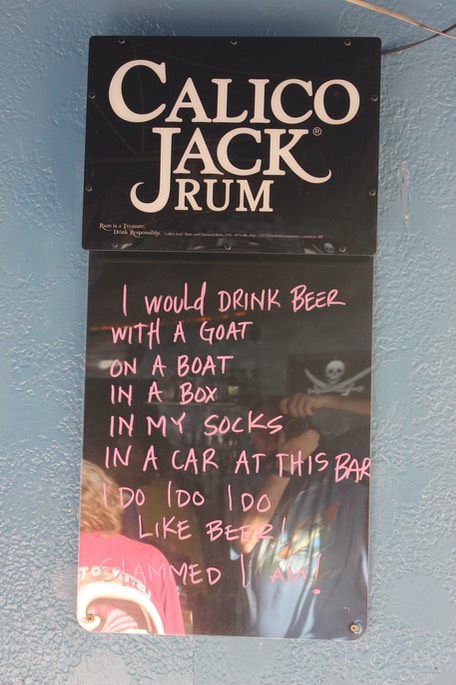 CALICO
JACK®
RUM
Rum is a Treasure.
Drink Responsibly.
I would DRINK BEER
WITH A GOAT
ON A BOAT
IN A BOX
IN MY SOCKS
IN A CAR AT THIS BAR
I DO I DO I DO
LIKE BEER!
SLAMMED I AM!